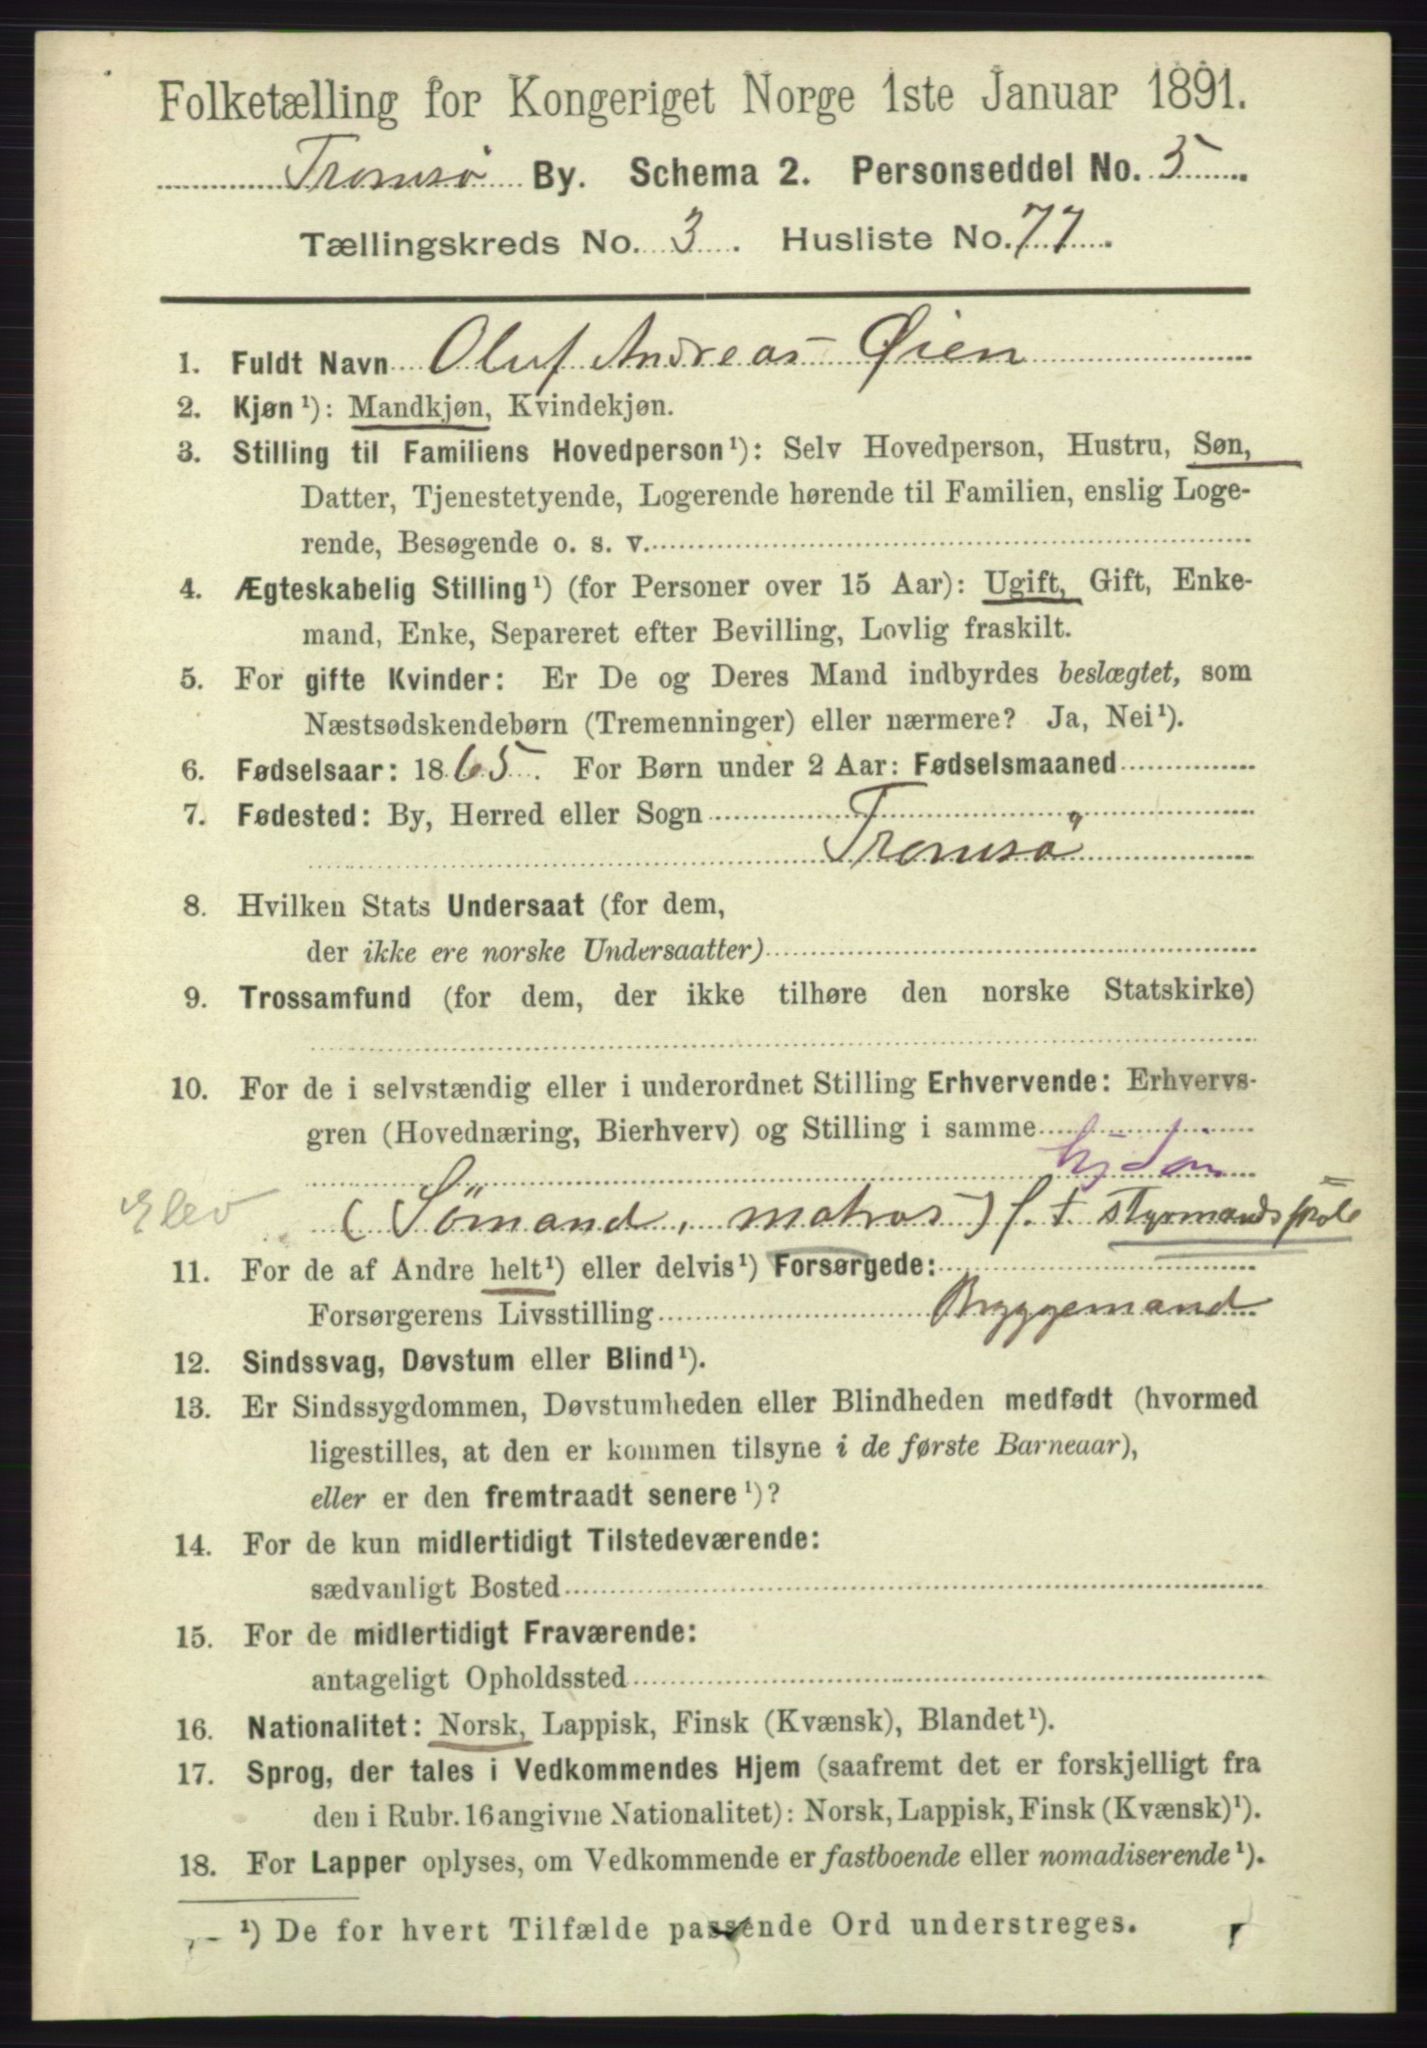 Folketælling for Kongeriget Norge 1ste Januar 1891.
Tromsø By. Schema 2. Personseddel No. 5
Tællingskreds No. 3. Husliste No. 77.
1. Fuldt Navn Oluf Andreas Øien
2. Kjøn ¹): Mandkjøn, Kvindekjøn.
3. Stilling til Familiens Hovedperson ¹): Selv Hovedperson, Hustru, Søn,
Datter, Tjenestetyende, Logerende hørende til Familien, enslig Loge-
rende, Besøgende o. s. v.
4. Ægteskabelig Stilling ¹) (for Personer over 15 Aar): Ugift, Gift, Enke-
mand, Enke, Separeret efter Bevilling, Lovlig fraskilt.
5. For gifte Kvinder: Er De og Deres Mand indbyrdes beslægtet, som
Næstsødskendebørn (Tremenninger) eller nærmere? Ja, Nei ¹).
6. Fødselsaar: 1865. For Børn under 2 Aar: Fødselsmaaned
7. Fødested: By, Herred eller Sogn
Tromsø
8. Hvilken Stats Undersaat (for dem,
der ikke ere norske Undersaatter)
9. Trossamfund (for dem, der ikke tilhøre den norske Statskirke)
10. For de i selvstændig eller i underordnet Stilling Erhvervende: Erhvervs-
gren (Hovednæring, Bierhverv) og Stilling i samme
Elev (Sömand, matros) f. t. styrmandsskole
11. For de af Andre helt ¹) eller delvis ¹) Forsørgede:
Forsørgerens Livsstilling Bryggemand
12. Sindssvag, Døvstum eller Blind ¹).
13. Er Sindssygdommen, Døvstumheden eller Blindheden medfødt (hvormed
ligestilles, at den er kommen tilsyne i de første Barneaar),
eller er den fremtraadt senere ¹)?
14. For de kun midlertidigt Tilstedeværende:
sædvanligt Bosted
15. For de midlertidigt Fraværende:
antageligt Opholdssted
16. Nationalitet: Norsk, Lappisk, Finsk (Kvænsk), Blandet ¹).
17. Sprog, der tales i Vedkommendes Hjem (saafremt det er forskjelligt fra
den i Rubr. 16 angivne Nationalitet): Norsk, Lappisk, Finsk (Kvænsk) ¹).
18. For Lapper oplyses, om Vedkommende er fastboende eller nomadiserende ¹).
¹) De for hvert Tilfælde passende Ord understreges.